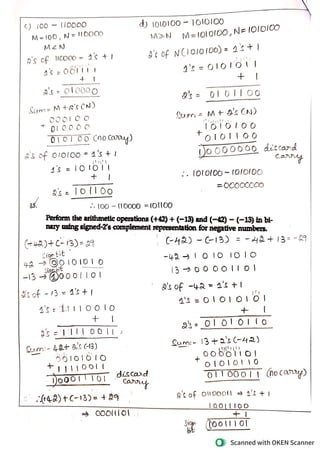 c) 100 − 110000
M=100, N=110000
M<N
2's of 110000 = 1's + 1
1's = 001111
+ 1
2's = 010000
Sum = M + 2's(N)
000100
+ 010000
010100 (no carry)
2's of 010100 = 1's + 1
1's = 101011
+ 1
2's = 101100
∴ 100 − 110000 = 101100
d) 1010100 − 1010100
M≥N M=1010100, N=1010100
2's of N(1010100) = 1's + 1
1's = 0101011
+ 1
2's = 0101100
Sum = M + 2's(N)
1010100
+ 0101100
1)0000000 discard
carry
∴ 1010100 − 1010100
=0000000
Perform the arithmetic operations (+42) + (−13) and (−42) − (−13) in bi-
nary using signed-2's complement representation for negative numbers.
(+42)+(−13)=29
sign bit
42 → 00101010
−13 → 10001101
2's of −13 = 1's + 1
1's = 11110010
+ 1
2's = 11110011
Sum = 42 + 2's(−13)
00101010
+ 11110011
1)00011101 discard
carry
∴ (+42)+(−13) = +29
⇒ 00011101
(−42) − (−13) = −42+13 = −29
−42 → 10101010
13 → 00001101
2's of −42 = 1's + 1
+ 1
2's = 01010110
Sum = 13 + 2's(−42)
00001101
01010110
01100011 (no carry)
2's of 01100011 ⇒ 1's + 1
10011100
+ 1
sign
bit
10011101
Scanned with OKEN Scanner